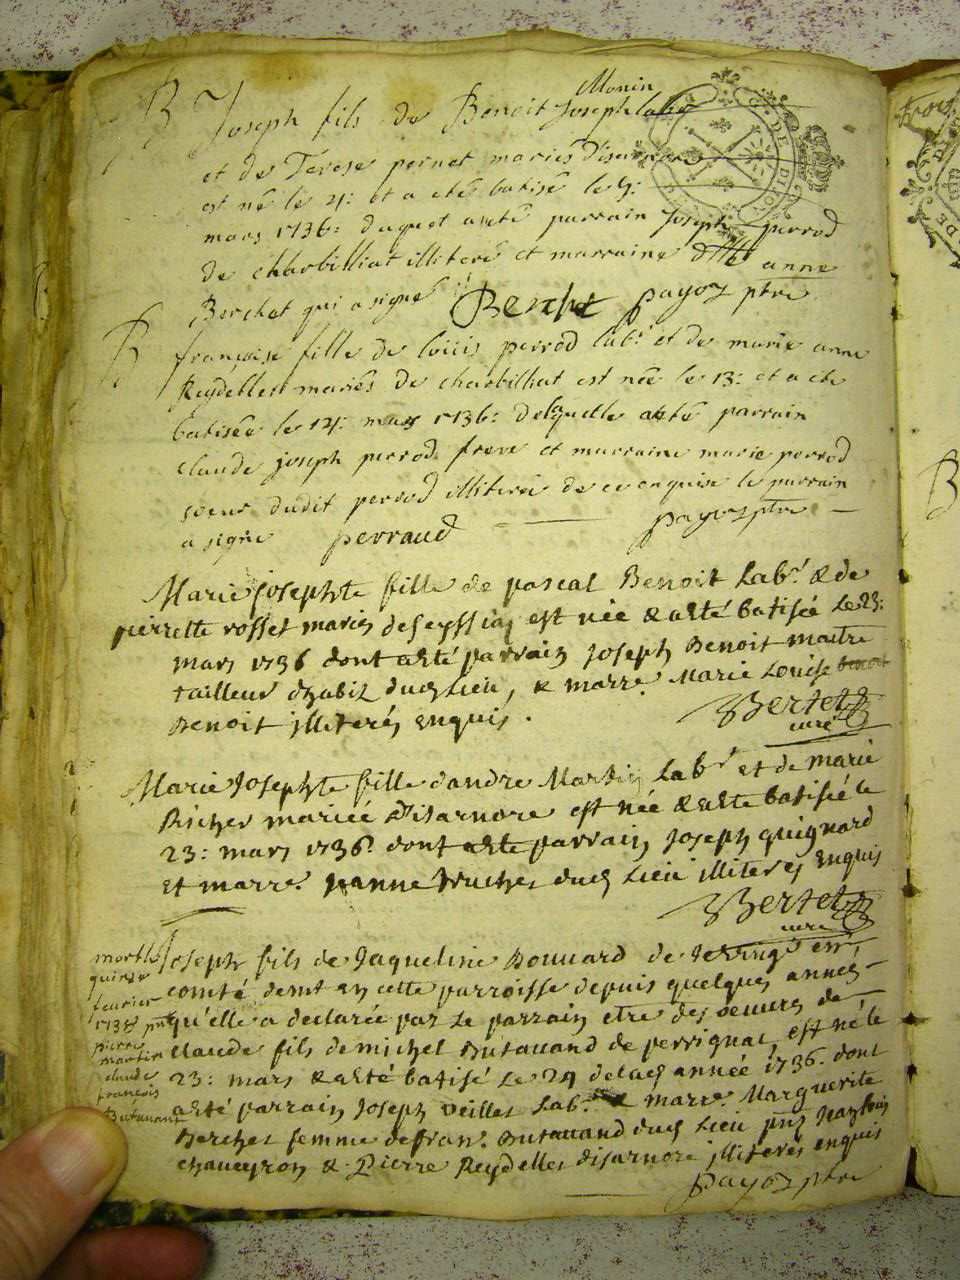 B Joseph fils de Benoit Monin Joseph labr
et de Terese pernet mariés disernore
est né le 4: et a eté batisé le 9:
mars 1736: duquel a eté parrain Joseph perrod
de charbilliat illiteré et marraine dlle anne
Berchet qui a signé Berchet payoz ptre
B françoise fille de louis perrod labr. et de marie anne
Reydellet mariés de charbilliat est née le 13: et a eté
batisée le 14: mars 1736: delaquelle a eté parrain
claude joseph perrod frere et marraine marie perrod
soeur dudit perrod illiterée de ce enquise le parrain
a signé perraud payoz ptre
Marie josephte fille de pascal Benoit Labr. & de
pierrette rosset mariés de seyssia est née & a eté batisée le 23:
mars 1736 dont a eté parrain Joseph Benoit maitre
tailleur dhabit dud lieu, & marre. Marie Louise
Benoit illiterés enquis.
Bertet
curé
Marie Josephte fille dandre Martin Labr et de marie
mariée disarnore est née & a eté batisée le
23: mars 1736. dont a eté parrain Joseph guignard
et marre. janne dud Lieu illiteres enquis
Bertet
curé
Joseph fils de Jaqueline Bouuard de en
comté demt en cette parroisse depuis quelques années
qu'elle a declarée par le parrain etre des oeuures de
claude fils de michel Butauand de perrignat, est né le
23: mars & a eté batisé le 24 delad année 1736. dont
a eté parrain Joseph veillet Lab. & marre. Marguerite
Berchet femme de fran. Butauand dud Lieu pnt
chaueyron & Pierre Reydellet disarnore illiterés enquis
payoz ptre
mort le
quinze
feurier
1738 pnt
pierre
martin
claude
françois
Butauant